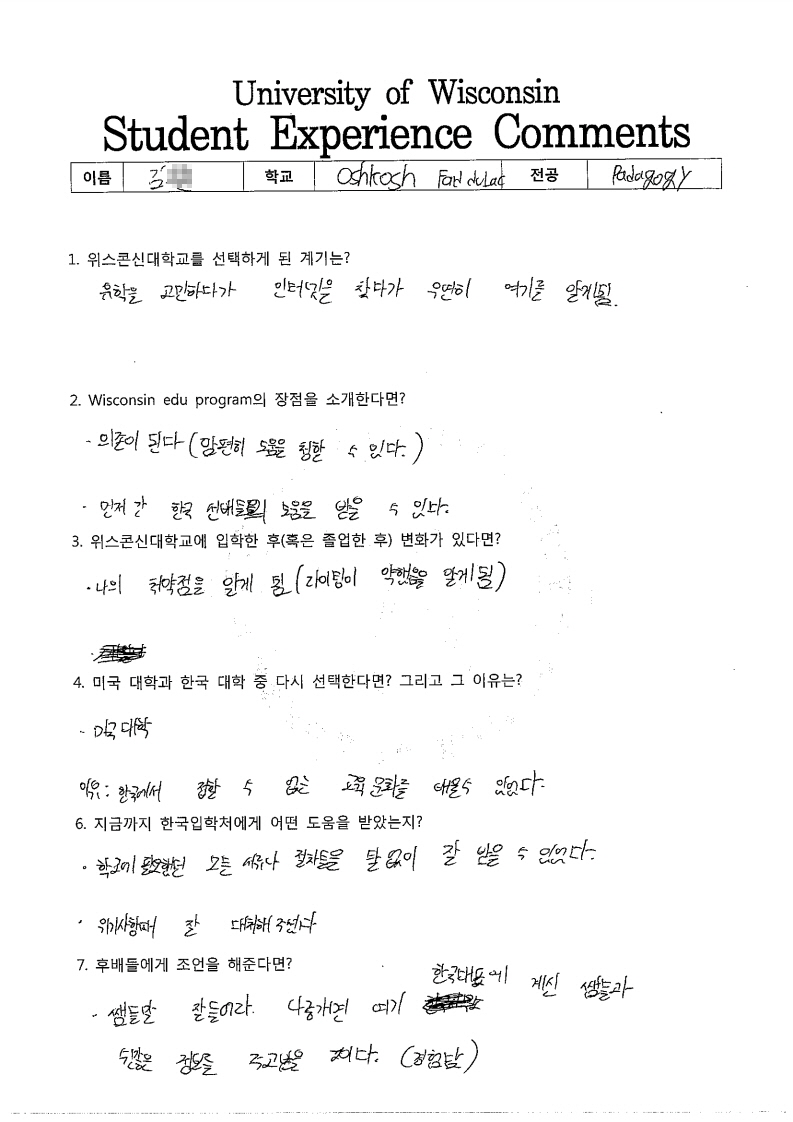 University of Wisconsin
Student Experience Comments
이름 김 학교 Oshkosh Fond duLac 전공 Padagogy
1. 위스콘신대학교를 선택하게 된 계기는?
유학을 고민하다가 인터넷을 찾다가 우연히 여기를 알게됨.
2. Wisconsin edu program의 장점을 소개한다면?
- 의존이 된다 (맘편히 도움을 청할 수 있다.)
- 먼저 간 한국 선배들의 도움을 받을 수 있다.
3. 위스콘신대학교에 입학한 후(혹은 졸업한 후) 변화가 있다면?
· 나의 취약점을 알게 됨 (라이팅이 약했음을 알게됨)
4. 미국 대학과 한국 대학 중 다시 선택한다면? 그리고 그 이유는?
- 미국대학
이유: 한국에서 접할 수 없는 교육문화를 배울수 있었다.
6. 지금까지 한국입학처에게 어떤 도움을 받았는지?
· 학교에 필요한 모든 서류나 절차들을 탈 없이 잘 받을 수 있었다.
· 위기사항때 잘 대처해주셨다
7. 후배들에게 조언을 해준다면?
한국대표에 계신 쌤들과
- 쌤들말 잘들어라. 나중가면 여기
수많은 정보를 주고받을 것이다. (경험담)